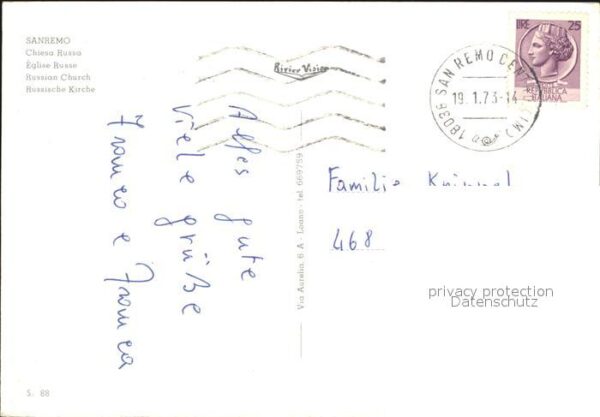 SANREMO
Chiesa Russa
Église Russe
Russian Church
Russische Kirche
LIRE 25
REPUBBLICA
ITALIANA
18038 SANREMO CENTRO (IM)
19.1.73-14
Alles gute
viele grüße
Franco e Franca
Via Aurelia, 6 A - Loano - tel. 669759
Familie
468
privacy protection
Datenschutz
S. 88